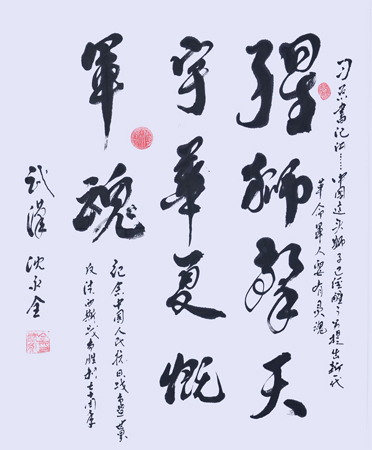 习总书记说……中国这头狮子已经醒了并提出新一代
革命軍人要有灵魂
醒獅擎天
宇華夏慨
軍魂
纪念中国人民抗日战争暨世界
反法西斯战争胜利七十周年
武漢 沈永全